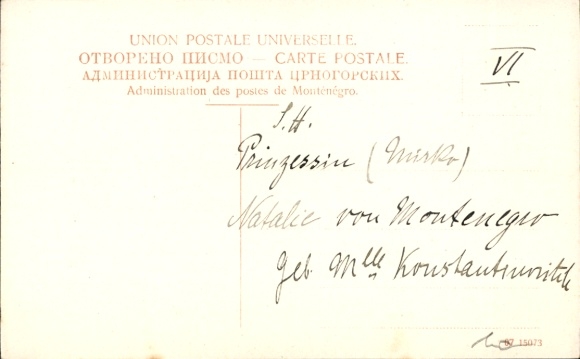 UNION POSTALE UNIVERSELLE.
ОТВОРЕНО ПИСМО — CARTE POSTALE.
АДМИНИСТРАЦИЈА ПОШТА ЦРНОГОРСКИХ.
Administration des postes de Monténégro.
VI
S. H.
Prinzessin (Mirko)
Natalie von Montenegro
geb. Mlle Konstantinovitch
07 15073